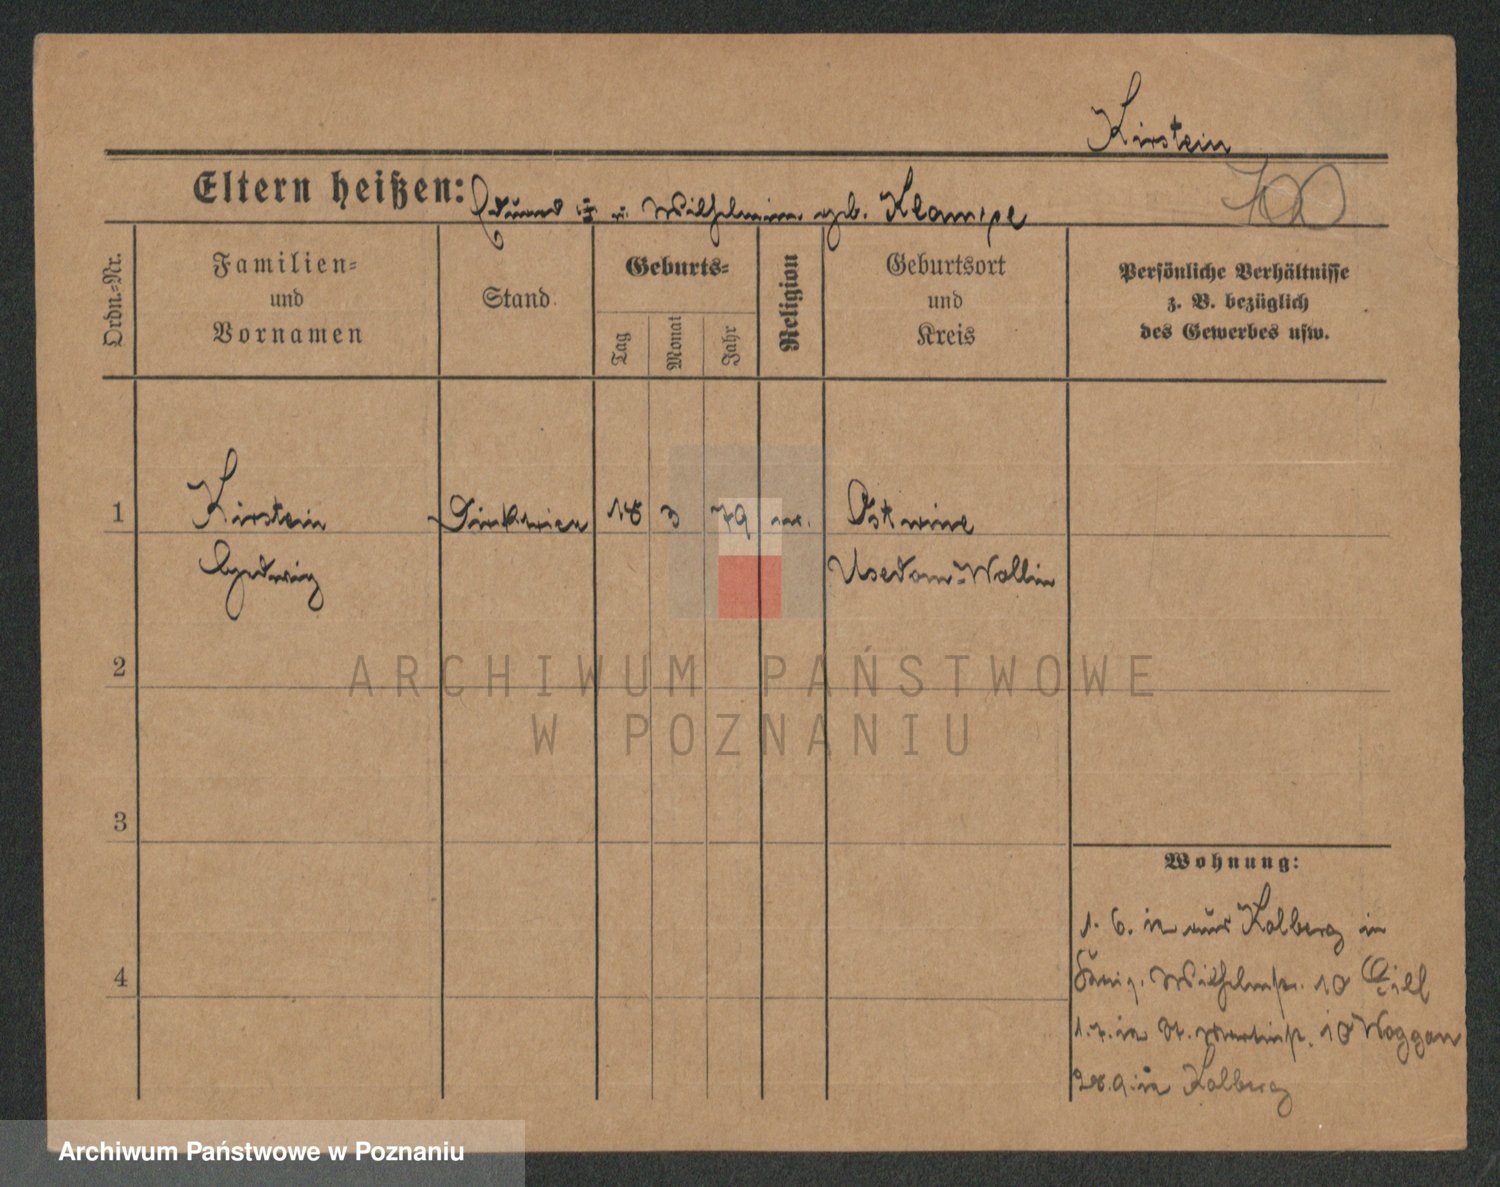 Kirstein
Eltern heißen: Eduard u. Wilhelmine geb. Klampe
700
Ordn.-Nr.
Familien-
und
Vornamen
Stand.
Geburts-
Tag
Monat
Jahr
Religion
Geburtsort
und
Kreis
Persönliche Verhältnisse
z. B. bezüglich
des Gewerbes usw.
1 Kirstein 18 3 79 Ostswine
Usedom-Wollin
2
ARCHIWUM PAŃSTWOWE
W POZNANIU
3
Wohnung:
1. 6. in aus Kolberg in
Wilhelmstr. 10
4
1. 7. in St. Martinstr. 10 Woggon
28. 9. in Kolberg
Archiwum Państwowe w Poznaniu